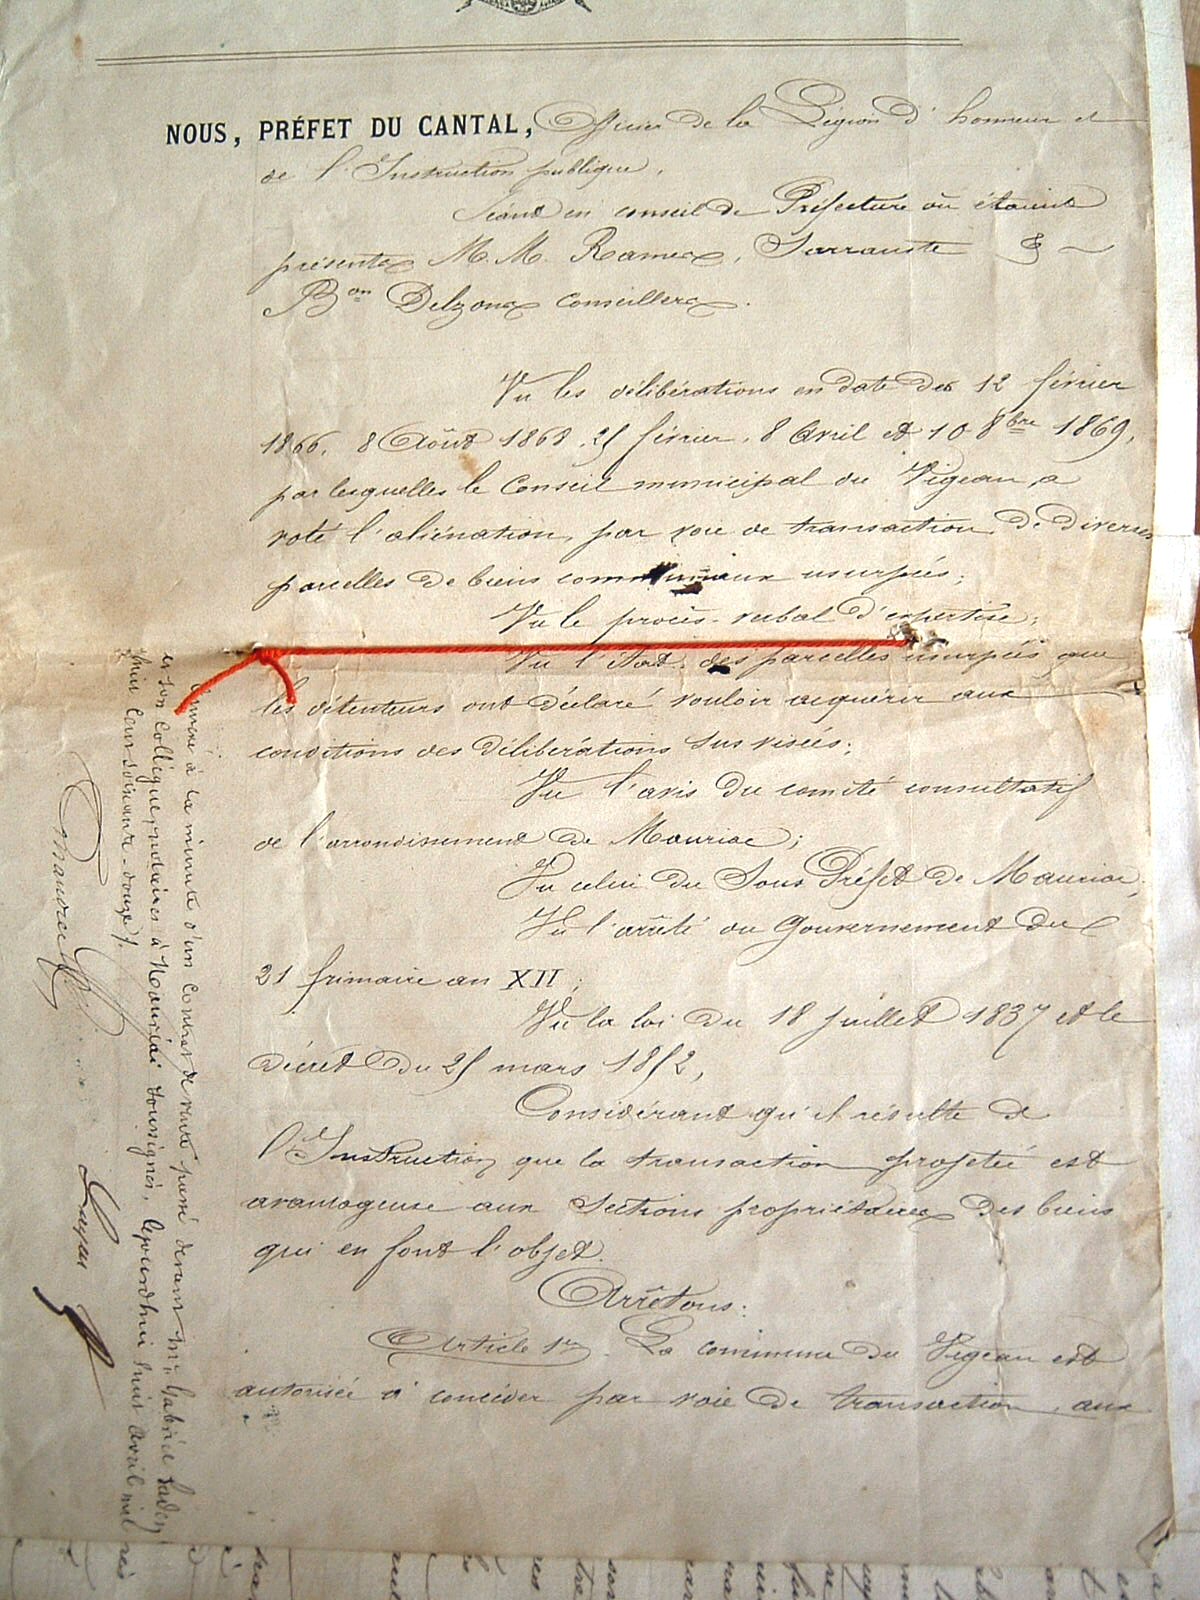 NOUS, PRÉFET DU CANTAL, Officier de la Légion d'honneur et
de l'Instruction publique,
Séant en conseil de Préfecture où étaient
présents M.M. Rames, Sarrauste &
Bon Delzons conseillers.
Vu les délibérations en date des 12 février
1866, 8 Août 1868, 25 février, 8 Avril et 10 8bre 1869,
par lesquelles le Conseil municipal du Vigean a
voté l'aliénation, par voie de transaction, de diverses
parcelles de biens communaux usurpés;
Vu le procès-verbal d'expertise;
Vu l'Etat des parcelles usurpées que
les détenteurs ont déclaré vouloir acquérir aux
conditions des délibérations sus visées;
Vu l'avis du comité consultatif
de l'arrondissement de Mauriac;
Vu celui du Sous Préfet de Mauriac;
Vu l'arrêté du Gouvernement du
21 frimaire an XII;
Vu la loi du 18 juillet 1837 et le
décret du 25 mars 1852,
Considérant qu'il résulte de
l'Instruction que la transaction projetée est
avantageuse aux Sections propriétaires des biens
qui en font l'objet.
Arrêtons:
Article 1er. La commune du Vigean est
autorisée à concéder par voie de transaction, aux
annexé à la minute d'un contrat de vente passé devant Me Gabriel
en son collègue, notaires à Mauriac soussignés, aujourd'hui huit avril mil
huit cent soixante-douze.